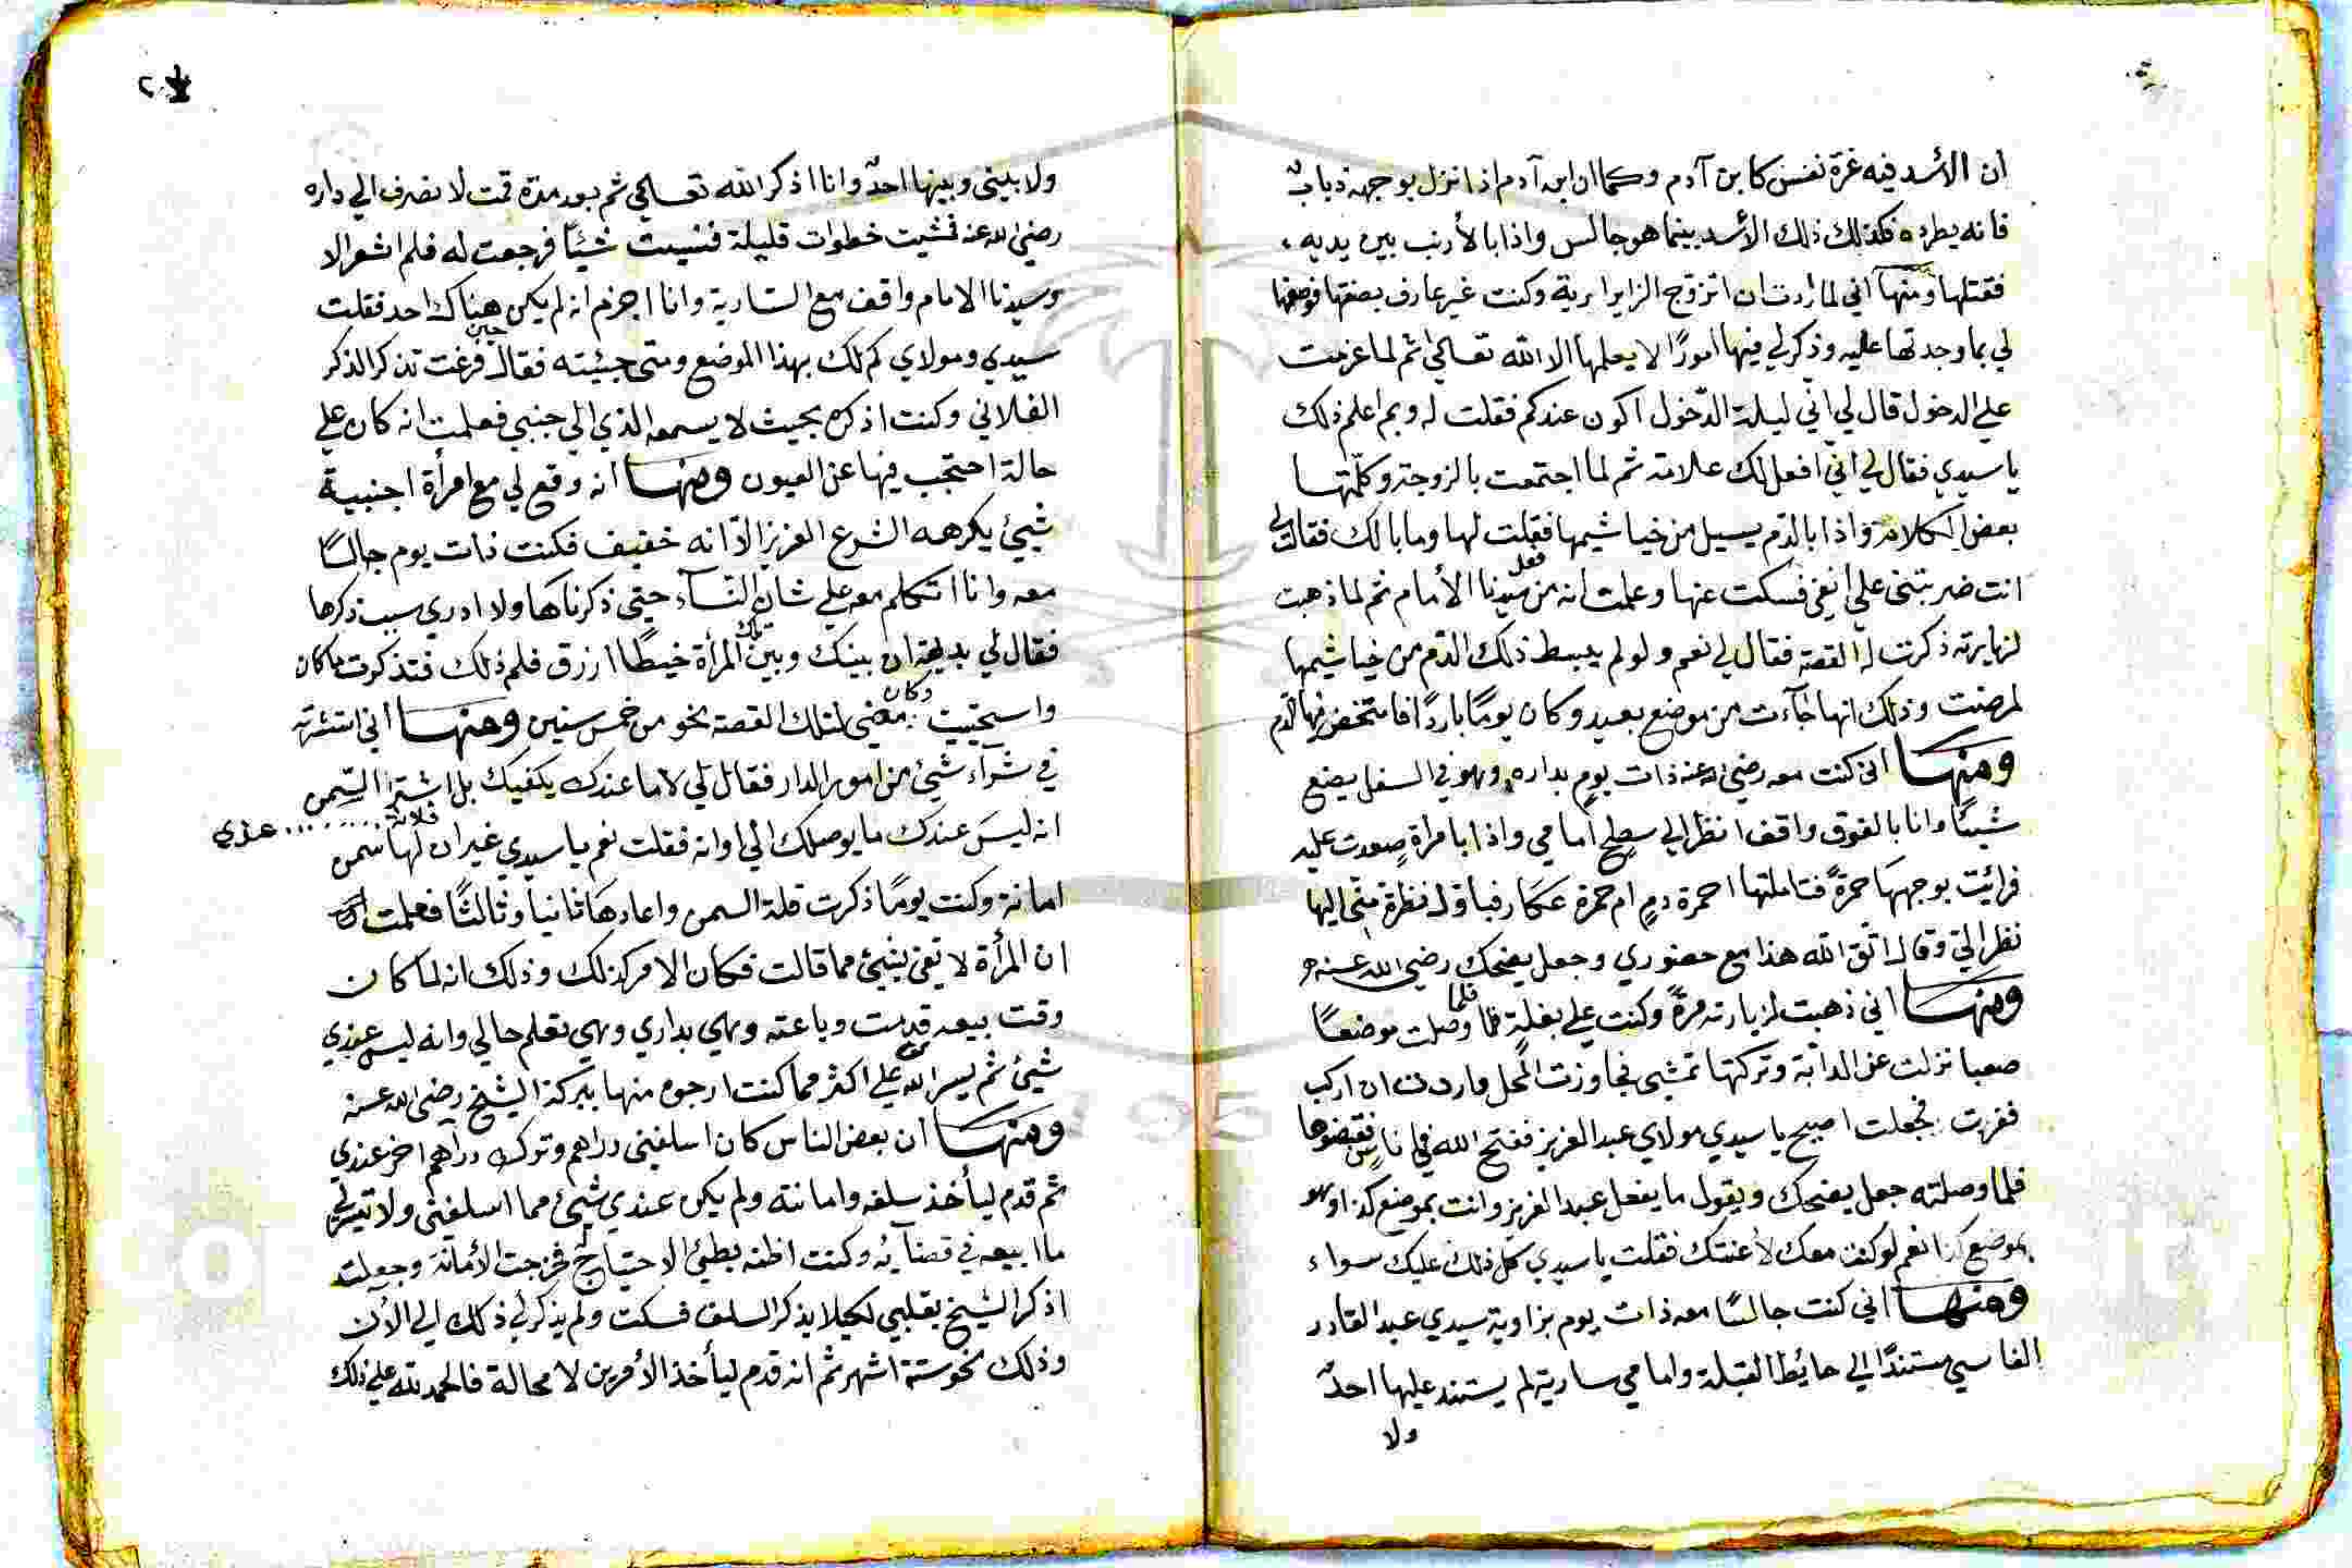 ان الأسد فيه غرة نفس كابن آدم وكما ان ابن آدم اذا نزل بوجهه ذباب
فانه يطرده فكذلك ذلك الأسد بينما هو جالس واذا بالأرنب بين يديه
فقتلها ومنها اني لما اردت ان اتزوج الزايرايرية وكنت غير عارف بصفتها فوصفها
لي بما وجدتها عليه وذكر لي فيها امورًا لا يعلمها الا الله تعالى ثم لما عزمت
على الدخول قال لي اني ليلة الدّخول اكون عندكم فقلت له وبم اعلم ذلك
يا سيدي فقال لي اني افعل لك علامة ثم لما اجتمعت بالزوجة وكلّمتها
بعض الكلام واذا بالدّم يسيل من خياشيمها فقلت لها وما بالك فقالت لي
انت ضربتني على انفي فسكت عنها وعلمت انه من فعل سيدنا الأمام ثم لما ذهبت
لزيارته ذكرت له القصة فقال لي نعم ولو لم يبسط ذلك الدّم من خياشيمها
لمرضت وذلك انها جاءت من موضع بعيد وكان يومًا باردًا فانتخض فيها الدم
ومنها اني كنت معه رضي الله عنه ذات يوم بداره وهو في السفل يضع
شيئًا وانا بالفوق واقف انظر الى سطح امامي واذا بامرأة صعدت عليه
فرأيت بوجهها حمرة فتاملتها احمرة دم ام حمرة عكار فباول نظرة مني اليها
نظر اليّ وقال اتق الله هذا مع حضوري وجعل يضحك رضي الله عنه
ومنها اني ذهبت لزيارته مرة وكنت على بغلة فلما وصلت موضعًا
صعبا نزلت عن الدابّة وتركتها تمشي فجاوزت المحل واردت ان اركب
ففرت فجعلت اصيح يا سيدي مولاي عبد العزيز ففتح الله في اناس فقبضوها
فلما وصلته جعل يضحك ويقول ما يفعل عبد العزيز وانت بموضع كذا وهو
بموضع كذا نعم لو كنت معك لأعنتك فقلت يا سيدي كل ذلك عليك سواء
ومنها اني كنت جالسًا معه ذات يوم بزاوية سيدي عبد القادر
الفاسي مستندًا الى حائط القبلة وامامي سارية لم يستند عليها احد
ولا
ولا بيني وبينها احد وانا اذكر الله تعالى ثم بعد مدّة قمت لا نصرف الى داره
رضي الله عنه فمشيت خطوات قليلة فنسيت شيئًا فرجعت له فلم اشعر الا
وسيدنا الامام واقف مع السارية وانا اجزم انه لم يكن هناك احد فقلت
سيدي ومولاي كم لك بهذا الموضع ومتى جيئته فقال حين فرغت تذكر الذكر
الفلاني وكنت اذكره بحيث لا يسمعه الذي الى جنبي فعلمت انه كان على
حالة احتجب فيها عن العيون ومنها انه وقع لي مع امرأة اجنبية
شيئ يكرهه الشرع العزيز الا انه خفيف فكنت ذات يوم جالسًا
معه وانا اتكلم معه على شان النساء حتى ذكرناها ولا ادري سبب ذكرها
فقال لي بديهة ان بينك وبين تلك المرأة خيطًا ازرق فلم ذلك فتذكرت ما كان
واستحييت وكان مضى لتلك القصة نحو من خمس سنين ومنها اني استشرته
في شراء شيئ من امور الدار فقال لي لا ما عندك يكفيك بل اشتر السّمن
انه ليس عندك ما يوصلك الى اوانه فقلت نعم يا سيدي غير ان فلانة لها سمن عندي
امانة وكنت يومًا ذكرت قلة السمن واعادها ثانيا وثالثًا فعلمت
ان المرأة لا تفي بشيئ مما قالت فكان الامر كذلك وذلك انه لما كان
وقت بيعه قدمت وباعته وهي بداري وهي تعلم حالي وانه ليس عندي
شيئ ثم يسر الله علي اكثر مما كنت ارجوه منها ببركة الشيخ رضي الله عنه
ومنها ان بعض الناس كان اسلفني دراهم وترك دراهم اخر عندي
ثم قدم ليأخذ سلفه وامانته ولم يكن عندي شيئ مما اسلفني ولا تيسر لي
ما ابيعه في قضائه وكنت اظنه بطئ الاحتياج فخرجت الأمانة وجعلت
اذكر الشيخ بقلبي لكيلا يذكر السلف فسكت ولم يذكر لي ذلك الى الآن
وذلك نحو ستة اشهر ثم انه قدم ليأخذ الأمرين لا محالة فالحمد لله على ذلك